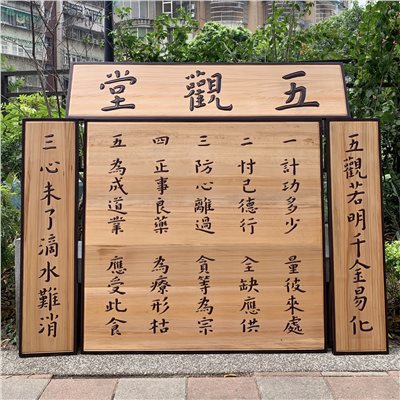 五觀堂
五觀若明千金易化
一計功多少 量彼來處
二忖己德行 全缺應供
三防心離過 貪等為宗
四正事良藥 為療形枯
五為成道業 應受此食
三心未了滴水難消